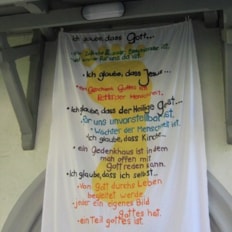 Ich glaube, dass Gott...
für uns da ist.
• Ich glaube, dass Jesus...
ein Geschenk Gottes ist.
• Ich glaube, dass der Heilige Geist...
für uns unvorstellbar ist.
Wächter der Menschen ist.
• Ich glaube, dass Kirche...
• ein Gedenkhaus ist indem
man offen mit
Gott reden kann.
• Ich glaube, dass ich selbst...
• von Gott durchs Leben
begleitet werde
• jeder ein eigenes Bild
Gottes hat.
• ein Teil Gottes ist.